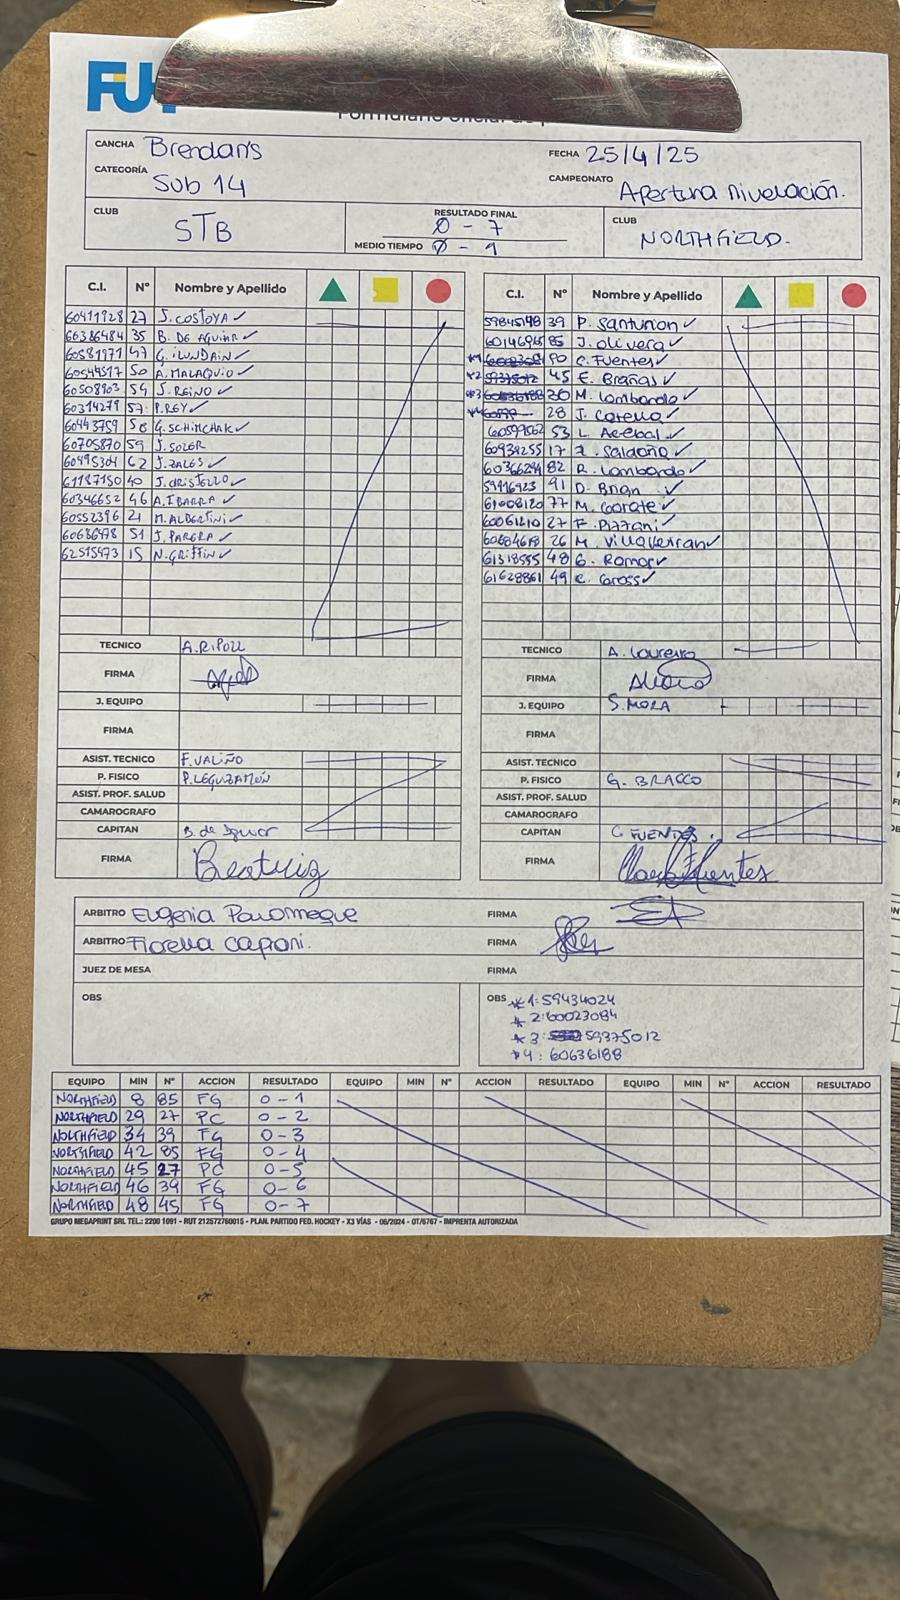 FU
CANCHA Brendan's FECHA 25/4/25
CATEGORÍA Sub 14 CAMPEONATO Apertura nivelación.
CLUB STB RESULTADO FINAL 0 - 7 CLUB NORTHFIELD.
MEDIO TIEMPO 0 - 1
C.I. Nº Nombre y Apellido
60411928 27 J. COSTOYA ✓
66386484 35 B. DE AGUIAR ✓
60581971 47 G. ILUNDAIN ✓
60544517 50 A. MALAQUIO ✓
60508903 54 J. REINO ✓
60314279 57 P. REY ✓
60443759 58 G. SCHIMCHAK ✓
60705870 59 J. SOLER ✓
60495304 62 J. ZALES ✓
61187150 40 J. CRISTELLO ✓
60346652 46 A. IBARRA ✓
60552396 21 M. ALBERTINI ✓
60636478 51 J. PARGRA ✓
62515473 15 N. GRIFFIN ✓
TECNICO A. RIPOLL
FIRMA
J. EQUIPO
FIRMA
ASIST. TECNICO F. VALIÑO
P. FISICO P. LEGUIZAMÓN
ASIST. PROF. SALUD
CAMAROGRAFO
CAPITAN B. de Aguiar
FIRMA Beatriz
C.I. Nº Nombre y Apellido
59845148 39 P. Santurion ✓
60146945 85 J. Olivera ✓
*1 90 C. Fuentes ✓
*2 45 E. Brañas ✓
*3 30 M. Lombardo ✓
*4 28 J. Carella ✓
60599562 53 L. Acebal ✓
60934255 17 J. Saldaña ✓
60366294 82 R. Lombardo ✓
59416423 91 D. Brian ✓
61008120 77 M. Gorate ✓
60061210 27 F. Pizzani ✓
60684618 26 M. Villaverran ✓
61318555 48 G. Ramos ✓
61628861 49 C. Gross ✓
TECNICO A. Loureiro
FIRMA
J. EQUIPO S. MORA
FIRMA
ASIST. TECNICO
P. FISICO G. BRACCO
ASIST. PROF. SALUD
CAMAROGRAFO
CAPITAN C. FUENTES.
FIRMA
ARBITRO Eugenia Palomeque FIRMA
ARBITRO Fiorella Caproni. FIRMA
JUEZ DE MESA FIRMA
OBS
OBS *1: 59434024
*2: 60023084
*3: 59375012
*4: 60636188
EQUIPO MIN Nº ACCION RESULTADO EQUIPO MIN Nº ACCION RESULTADO EQUIPO MIN Nº ACCION RESULTADO
NORTHFIELD 8 85 FG 0 - 1
NORTHFIELD 29 27 PC 0 - 2
NORTHFIELD 34 39 FG 0 - 3
NORTHFIELD 42 85 FG 0 - 4
NORTHFIELD 45 27 PC 0 - 5
NORTHFIELD 46 39 FG 0 - 6
NORTHFIELD 48 45 FG 0 - 7
GRUPO MEGAPRINT SRL TEL.: 2200 1091 - RUT 212572760015 - PLAN. PARTIDO FED. HOCKEY - X3 VÍAS - 06/2024 - OT/6767 - IMPRENTA AUTORIZADA